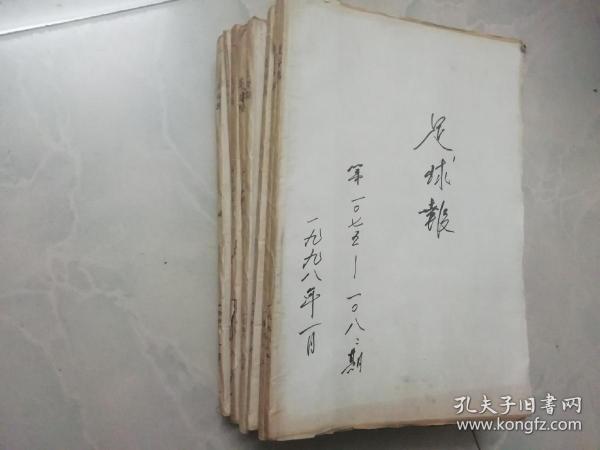 足球報
第一〇七五—一〇八二期
一九九八年一月
孔夫子旧书网
www.kongfz.com